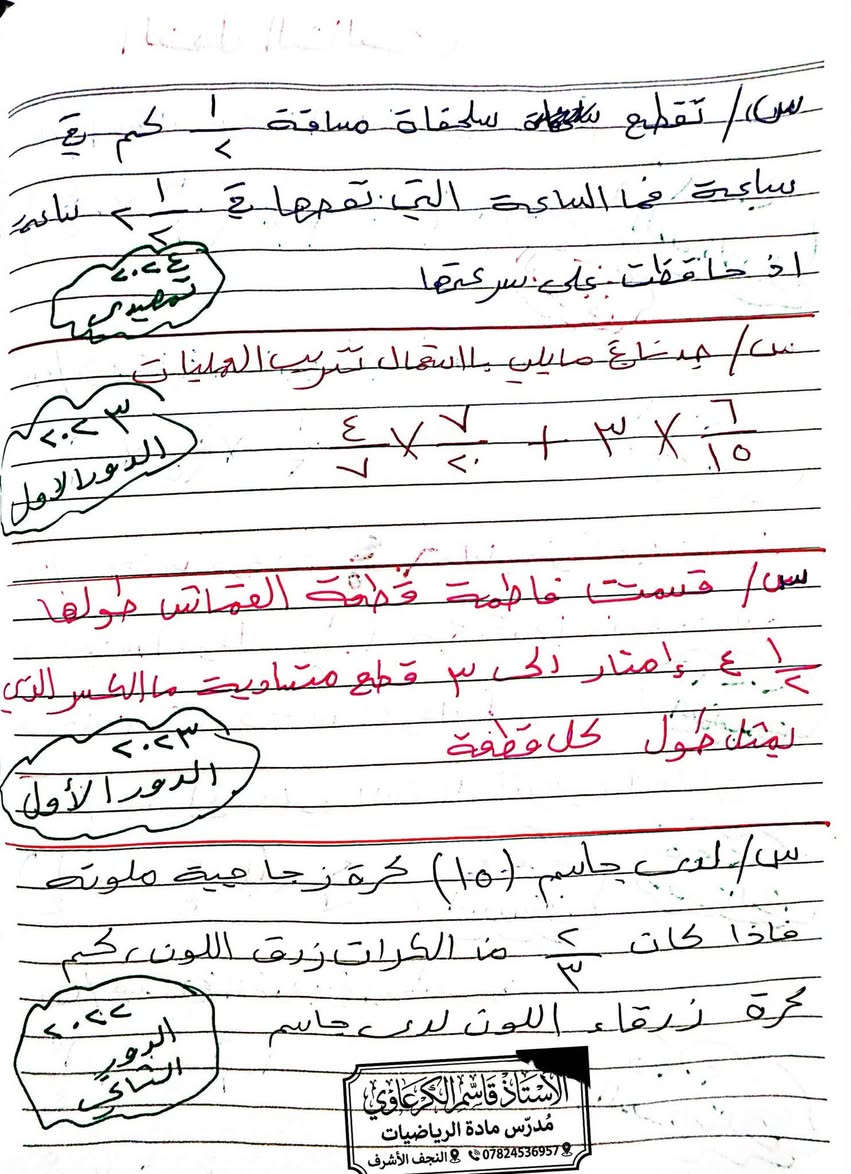 س/ تقطع سلحفاة مسافة ١/٢ كم في
ساعة فما المساعة التي تقطعها في ٢ ١/٢ ساعة
اذ حافظت على سرعتها
٢٠٢٤
تمهيدي
س/ جد ناتج مايلي بااستعمال ترتيب العمليات
٦/١٥ × ٣ + ٧/٢٠ × ٤/٧
٢٠٢٣
الدور الاول
س/ قسمت فاطمة قطعة القماش طولها
٤ ١/٢ إمتار الى ٣ قطع متساوية ما الكسر الذي
يمثل طول كل قطعة
٢٠٢٣
الدور الأول
س/ لدى جاسم (١٥) كرة زجاجية ملونه
فاذا كان ٢/٣ من الكرات زرق اللون، كم
كرة زرقاء اللون لدى جاسم
٢٠٢٢
الدور
الثاني
الأستاذ قاسم الكرعاوي
مُدرّس مادة الرياضيات
07824536957 النجف الأشرف